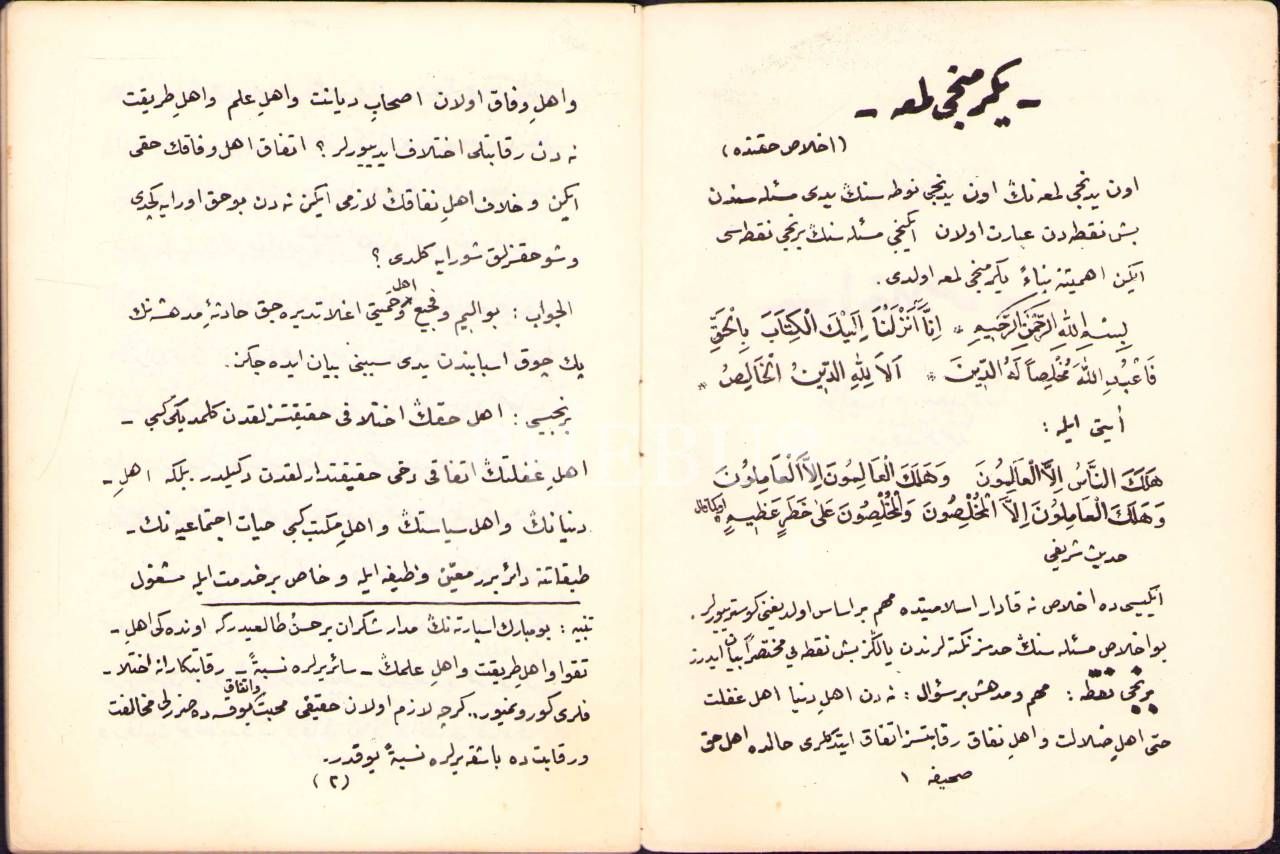 ـ يكرمنجى لمعه ـ
(اخلاص حقنده)
اون يدنجى لمعه نڭ اون يدنجى نوطه سنڭ يدى مسئله سندن
بش نقطه دن عبارت اولان ايكنجى مسئله سنڭ برنجى نقطه سى
ايكن اهميتنه بناءً يكرمنجى لمعه اولدى.
بِسْمِ اللهِ الرَّحْمٰنِ الرَّحِيمِ * اِنَّا اَنْزَلْنَا اِلَيْكَ الْكِتَابَ بِالْحَقِّ
فَاعْبُدِ اللهَ مُخْلِصًا لَهُ الدِّينَ * اَلَا لِلّٰهِ الدِّينُ الْخَالِصُ *
آيتى ايله :
هَلَكَ النَّاسُ اِلَّا الْعَالِمُونَ وَهَلَكَ الْعَالِمُونَ اِلَّا الْعَامِلُونَ
وَهَلَكَ الْعَامِلُونَ اِلَّا الْمُخْلِصُونَ وَالْمُخْلِصُونَ عَلٰى خَطَرٍ عَظِيمٍ اوكما قال
حديث شريفى
ايكيسى ده اخلاص نه قادار اسلاميتده مهم بر اساس اولديغنى كوسترييورلر.
بو اخلاص مسئله سنڭ حدسز نكته لرندن يالكز بش نقطه يى مختصراً بيان ايدرز
برنجى نقطه : مهم ومدهش بر سؤال : نه دن اهل دنيا اهل غفلت
حتى اهلِ ضلالت واهلِ نفاق رقابتسز اتفاق ايتدكلرى حالده اهل حق
صحيفه ١
واهلِ وفاق اولان اصحابِ ديانت واهلِ علم واهلِ طريقت
نه دن رقابتلى اختلاف ايدييورلر ؟ اتفاق اهل وفاقك حقى
ايكن و خلاف اهلِ نفاقڭ لازمى ايكن نه دن بو حق اورايه كچدى
وشو حقسزلق شورايه كلدى ؟
الجواب : بو اليم و فجيع و اهل حميتى اغلاتديره جق حادثۀ مدهشه نڭ
پك چوق اسبابندن يدى سببنى بيان ايده جكز.
برنجيسى : اهل حقڭ اختلافى حقيقتسزلقدن كلمديكى كبى ـ
اهلِ غفلتڭ اتفاقى دخى حقيقتدارلقدن دكيلدر. بلكه اهلِ ـ
دنيانڭ واهل سياستڭ واهلِ مكتب كبى حيات اجتماعيه نڭ ـ
طبقاتنه دائر برر معيّن وظيفه ايله و خاص بر خدمت ايله مشغول
تنبيه : بو مبارك اسپارته نڭ مدار شكران بر حسن طالعيدر كه اونده كى اهلِ ـ
تقوا واهل طريقت واهلِ علمڭ ـ سائر يرلره نسبةً ـ رقابتكارانه اختلا ـ
فلرى كورونميور.. كرچه لازم اولان حقيقى محبت واتفاق يوقسه ده ضررلى مخالفت
ورقابت ده باشقه يرلره نسبةً يوقدر.
(٢)